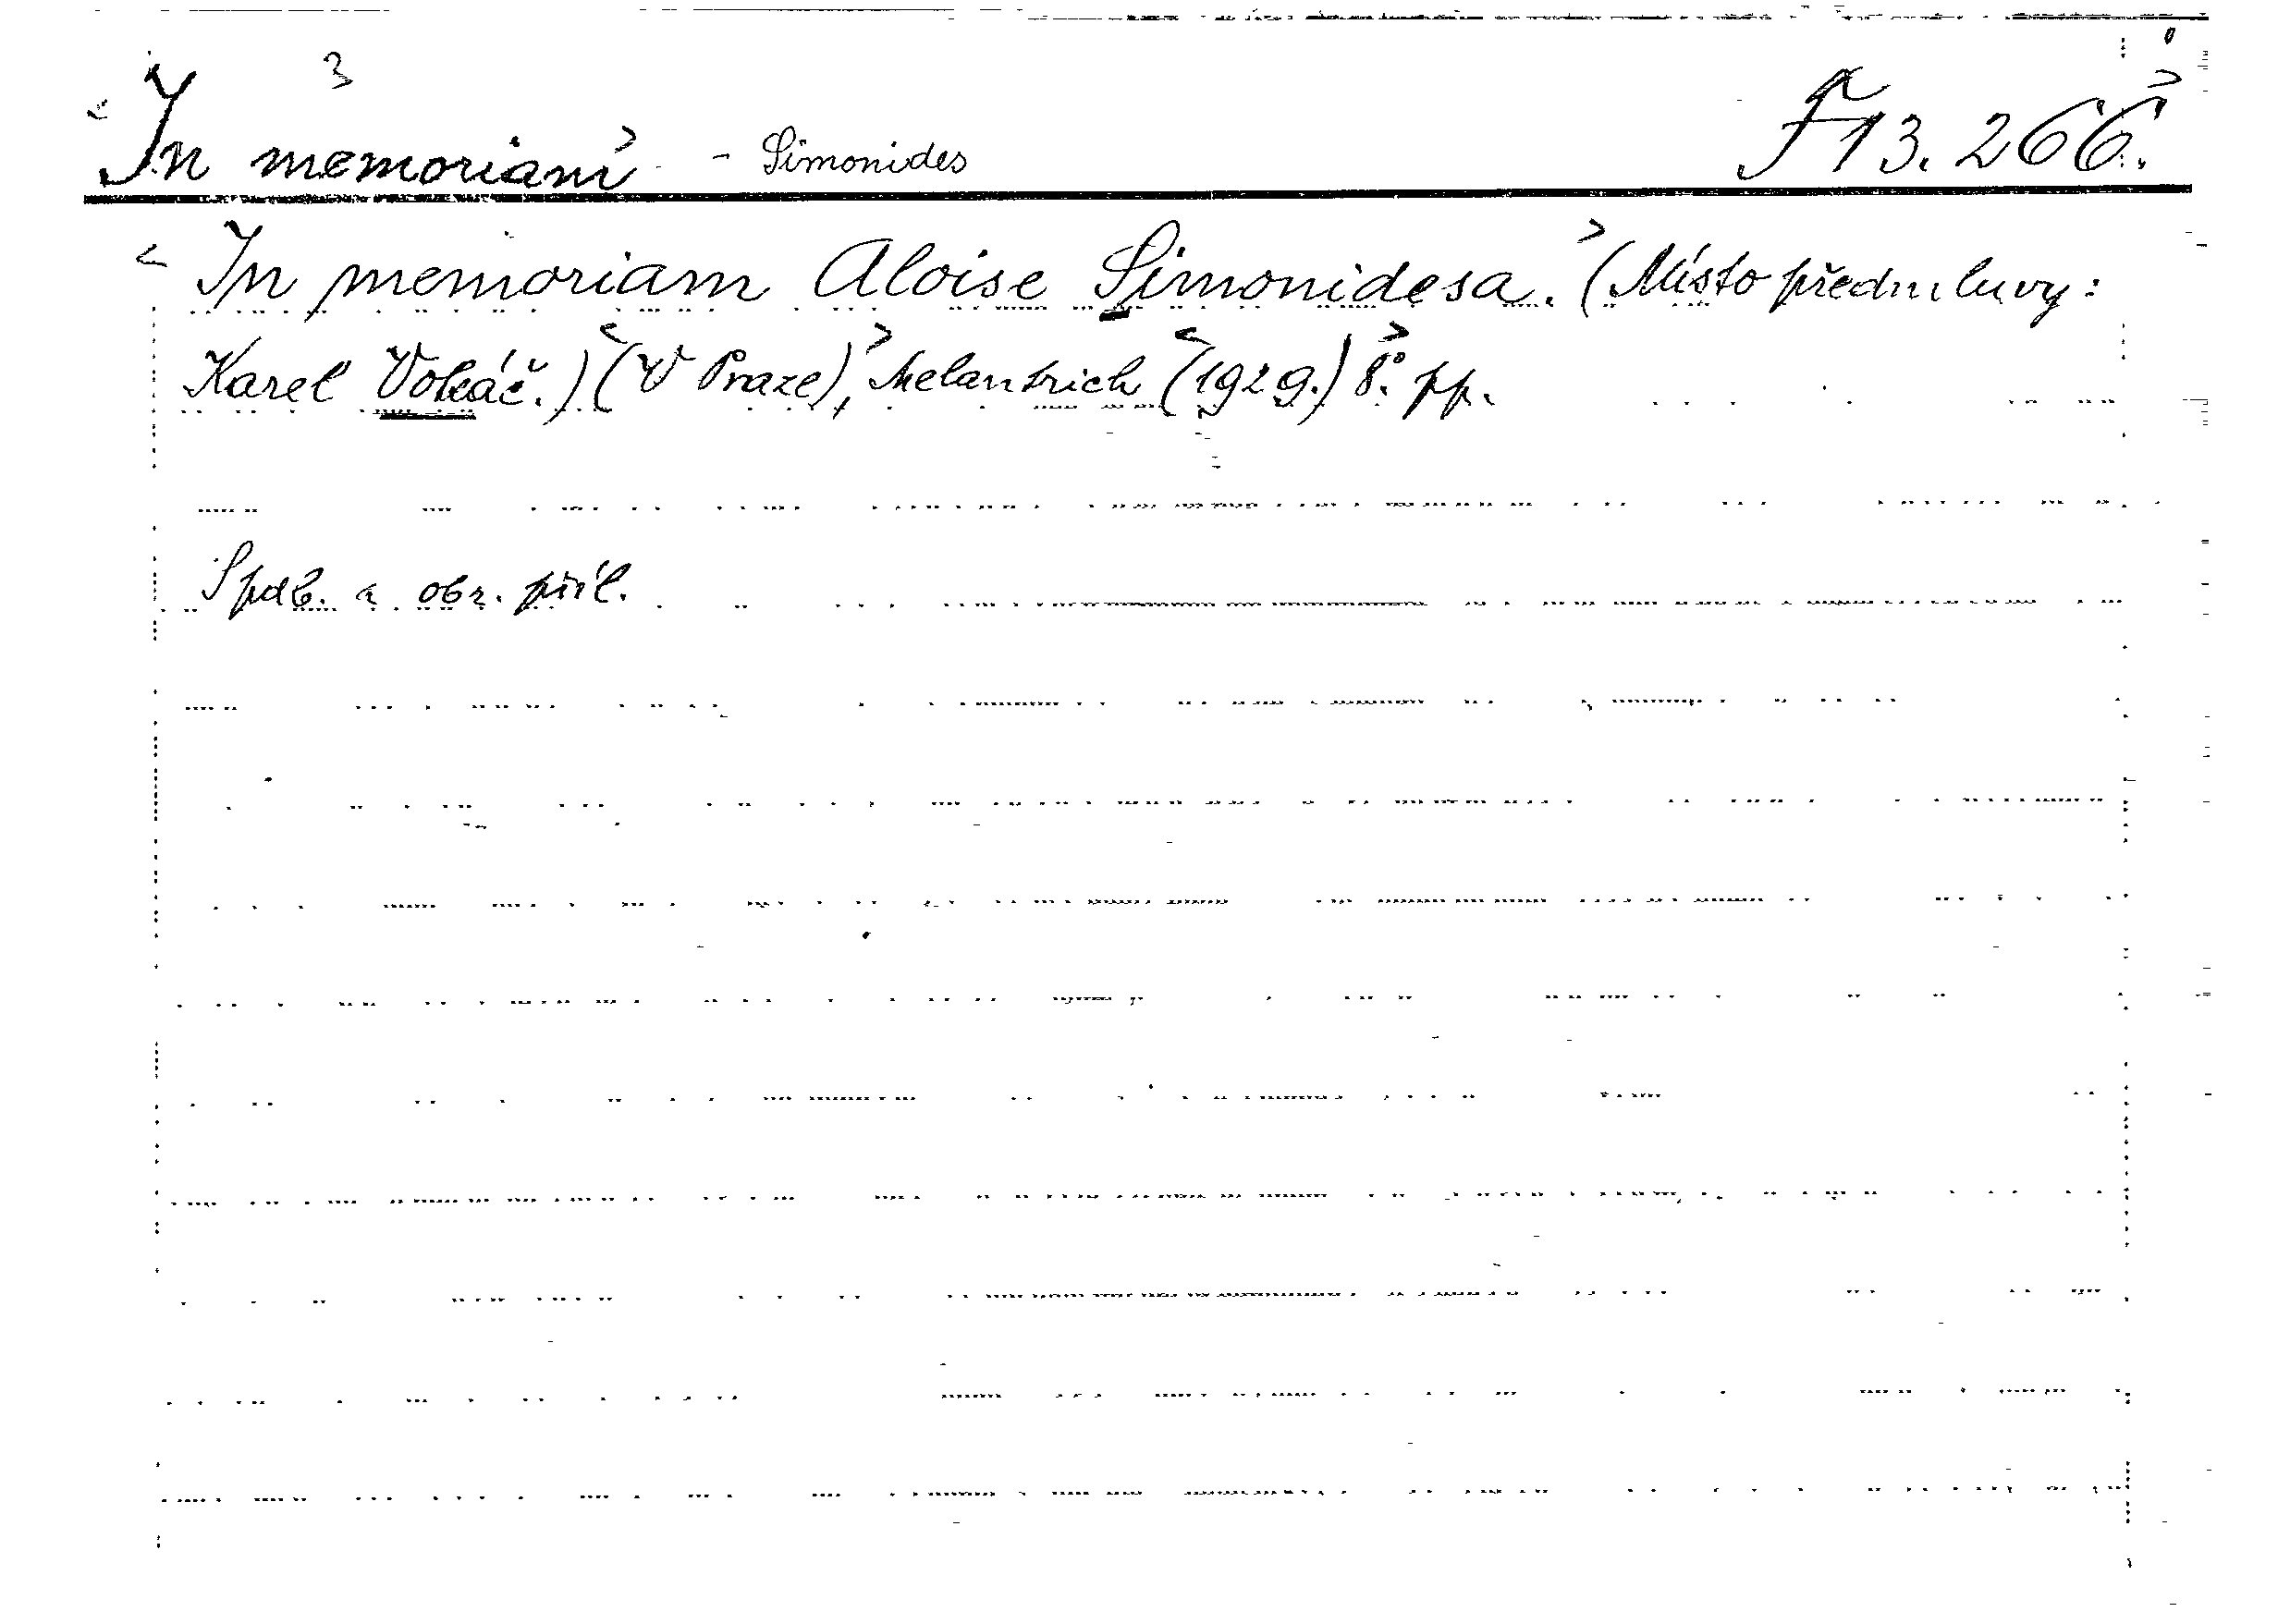 3
In memoriam - Simonides F 13.266.
In memoriam Aloise Simonidesa. (Místo předmluvy:
Karel Voleáč.) (V Praze), Melantrich (1929.) 8°. pp.
S pdb. a obr. příl.